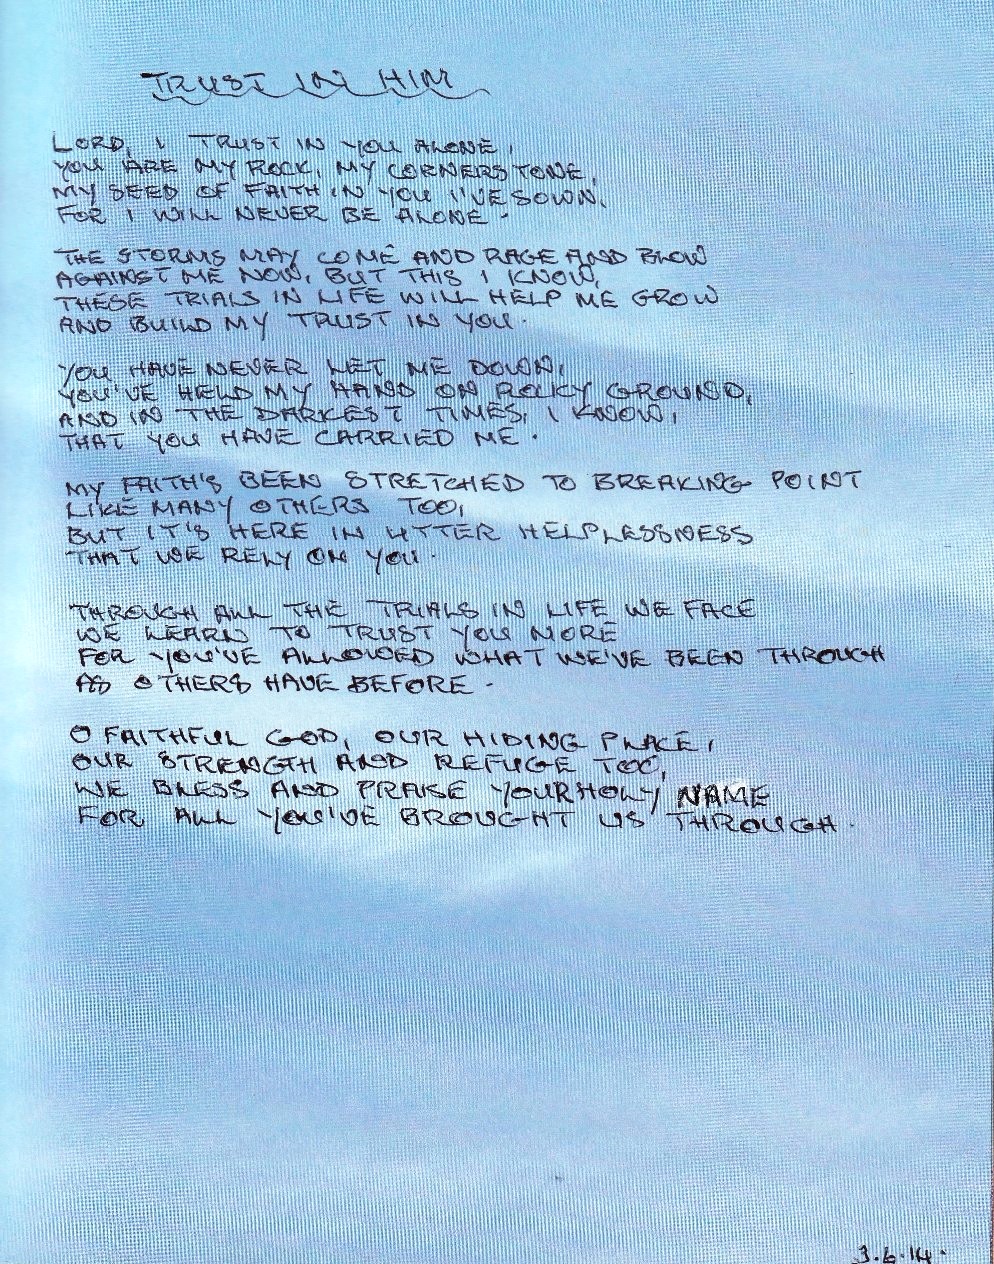 TRUST IN HIM
LORD, I TRUST IN YOU ALONE,
YOU ARE MY ROCK, MY CORNERSTONE,
MY SEED OF FAITH IN YOU I'VE SOWN,
FOR I WILL NEVER BE ALONE.
THE STORMS MAY COME AND RAGE AND BLOW
AGAINST ME NOW, BUT THIS I KNOW,
THESE TRIALS IN LIFE WILL HELP ME GROW
AND BUILD MY TRUST IN YOU.
YOU HAVE NEVER LET ME DOWN,
YOU'VE HELD MY HAND ON ROCKY GROUND,
AND IN THE DARKEST TIMES, I KNOW,
THAT YOU HAVE CARRIED ME.
MY FAITH'S BEEN STRETCHED TO BREAKING POINT
LIKE MANY OTHERS TOO,
BUT IT'S HERE IN UTTER HELPLESSNESS
THAT WE RELY ON YOU.
THROUGH ALL THE TRIALS IN LIFE WE FACE
WE LEARN TO TRUST YOU MORE
FOR YOU'VE ALLOWED WHAT WE'VE BEEN THROUGH
AS OTHERS HAVE BEFORE.
O FAITHFUL GOD, OUR HIDING PLACE,
OUR STRENGTH AND REFUGE TOO,
WE BLESS AND PRAISE YOUR HOLY NAME
FOR ALL YOU'VE BROUGHT US THROUGH.
3.6.14.